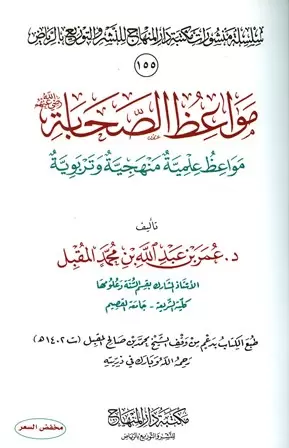 سلسلة منشورات مكتبة دار المنهاج للنشر والتوزيع بالرياض
١٥٥
مَوَاعِظُ الصَّحَابَةِ رضي الله عنهم
مَوَاعِظُ عِلْمِيَّةٌ مَنْهَجِيَّةٌ وَتَرْبَوِيَّةٌ
تأليف
د. عُمَر بن عَبْدِ اللهِ بن مُحَمَّد المُقْبِل
الأستاذ المشارك بقسم السنة وعلومها
كلية الشريعة - جامعة القصيم
طبع الكتاب بدعم من وقف الشيخ محمد بن صالح المقبل (ت ١٤٠٢هـ)
رحمه الله وبارك في ذريته
مكتبة دار المنهاج
للنشر والتوزيع بالرياض
مخفض السعر